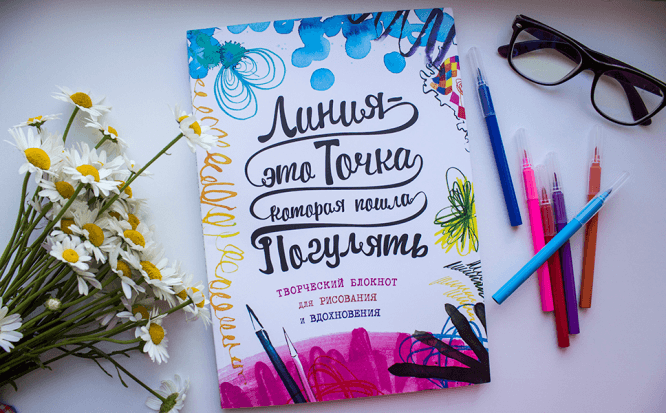 Линия-
это Точка
которая пошла
Погулять
ТВОРЧЕСКИЙ БЛОКНОТ
для РИСОВАНИЯ
и ВДОХНОВЕНИЯ